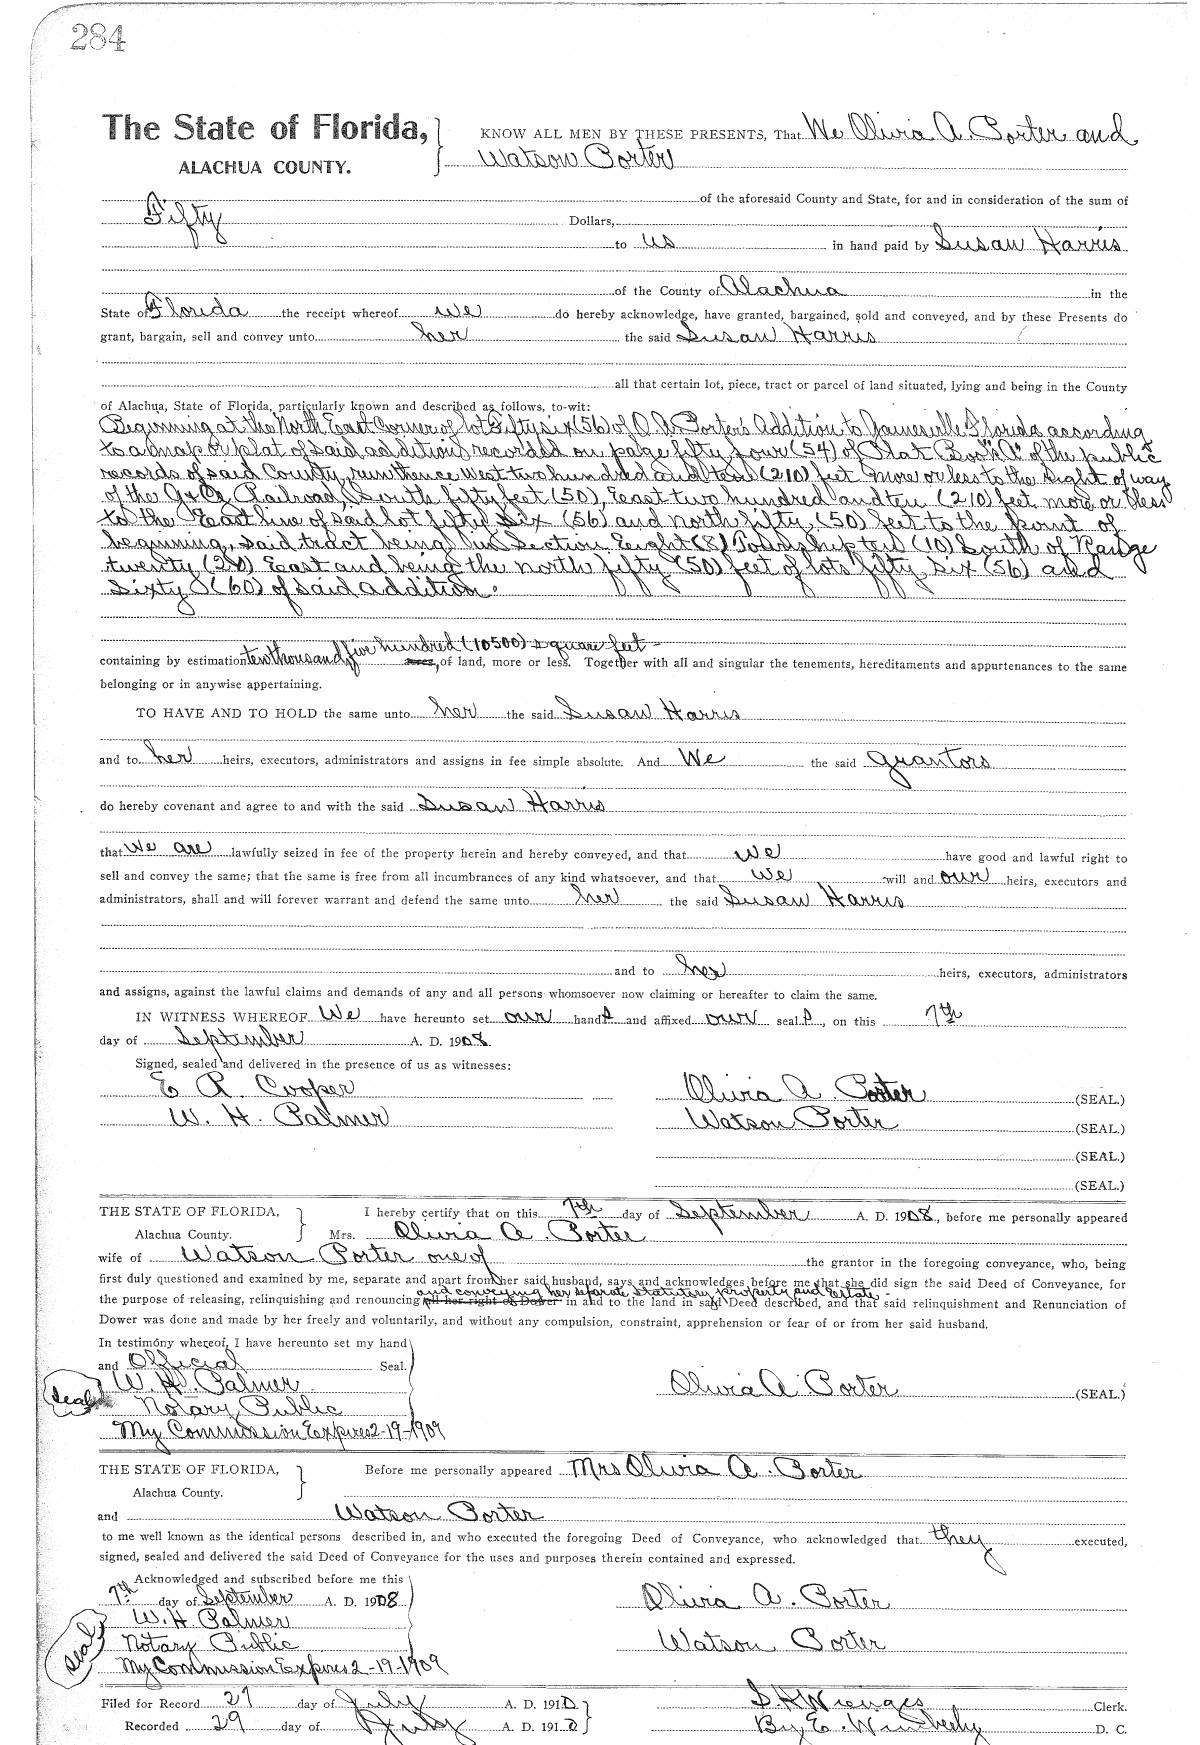 284
The State of Florida,
ALACHUA COUNTY.
KNOW ALL MEN BY THESE PRESENTS, That We Olivia A. Porter and
Watson Porter
of the aforesaid County and State, for and in consideration of the sum of
Fifty Dollars,
to us in hand paid by Susan Harris
of the County of Alachua in the
State of Florida the receipt whereof we do hereby acknowledge, have granted, bargained, sold and conveyed, and by these Presents do
grant, bargain, sell and convey unto her the said Susan Harris
all that certain lot, piece, tract or parcel of land situated, lying and being in the County
of Alachua, State of Florida, particularly known and described as follows, to-wit:
Beginning at the North East Corner of lot Fifty six (56) of O.A. Porter's Addition to Gainesville Florida according
to a map or plat of said addition recorded on page fifty four (54) of Plat Book "A" of the public
records of said County, run thence West two hundred and ten (210) feet more or less to the right of way
of the G & G Railroad, South fifty feet (50), East two hundred and ten (210) feet more or less
to the East line of said lot fifty six (56) and north fifty (50) feet to the point of
beginning, said tract being in Section Eight (8) Township ten (10) South of Range
twenty (20) East and being the north fifty (50) feet of lots fifty six (56) and
Sixty (60) of said addition.
containing by estimation ten thousand, five hundred (10500) square feet acres, of land, more or less. Together with all and singular the tenements, hereditaments and appurtenances to the same
belonging or in anywise appertaining.
TO HAVE AND TO HOLD the same unto her the said Susan Harris
and to her heirs, executors, administrators and assigns in fee simple absolute. And We the said grantors
do hereby covenant and agree to and with the said Susan Harris
that We are lawfully seized in fee of the property herein and hereby conveyed, and that we have good and lawful right to
sell and convey the same; that the same is free from all incumbrances of any kind whatsoever, and that we will and our heirs, executors and
administrators, shall and will forever warrant and defend the same unto her the said Susan Harris
and to her heirs, executors, administrators
and assigns, against the lawful claims and demands of any and all persons whomsoever now claiming or hereafter to claim the same.
IN WITNESS WHEREOF We have hereunto set our hands and affixed our seals, on this 7th
day of September A. D. 1908.
Signed, sealed and delivered in the presence of us as witnesses:
E R. Cooper Olivia A. Porter (SEAL.)
W. H. Palmer Watson Porter (SEAL.)
(SEAL.)
(SEAL.)
THE STATE OF FLORIDA, I hereby certify that on this 7th day of September A. D. 1908, before me personally appeared
Alachua County. Mrs. Olivia A. Porter
wife of Watson Porter one of the grantor in the foregoing conveyance, who, being
first duly questioned and examined by me, separate and apart from her said husband, says and acknowledges before me that she did sign the said Deed of Conveyance, for
and conveying her separate statutory property and estate
the purpose of releasing, relinquishing and renouncing all her right of Dower in and to the land in said Deed described, and that said relinquishment and Renunciation of
Dower was done and made by her freely and voluntarily, and without any compulsion, constraint, apprehension or fear of or from her said husband.
In testimony whereof, I have hereunto set my hand
and Official Seal.
W. H. Palmer Olivia A Porter (SEAL.)
Seal
Notary Public
My Commission Expires 2-19-1909
THE STATE OF FLORIDA, Before me personally appeared Mrs Olivia A. Porter
Alachua County.
and Watson Porter
to me well known as the identical persons described in, and who executed the foregoing Deed of Conveyance, who acknowledged that they executed,
signed, sealed and delivered the said Deed of Conveyance for the uses and purposes therein contained and expressed.
Acknowledged and subscribed before me this
7th day of September A. D. 1908 Olivia A. Porter
W. H. Palmer
seal
Notary Public Watson Porter
My Commission Expires 2-19-1909
Filed for Record 27 day of July A. D. 1910 S. H. Wienges Clerk.
Recorded 29 day of July A. D. 1910 By E. Wimberly D. C.